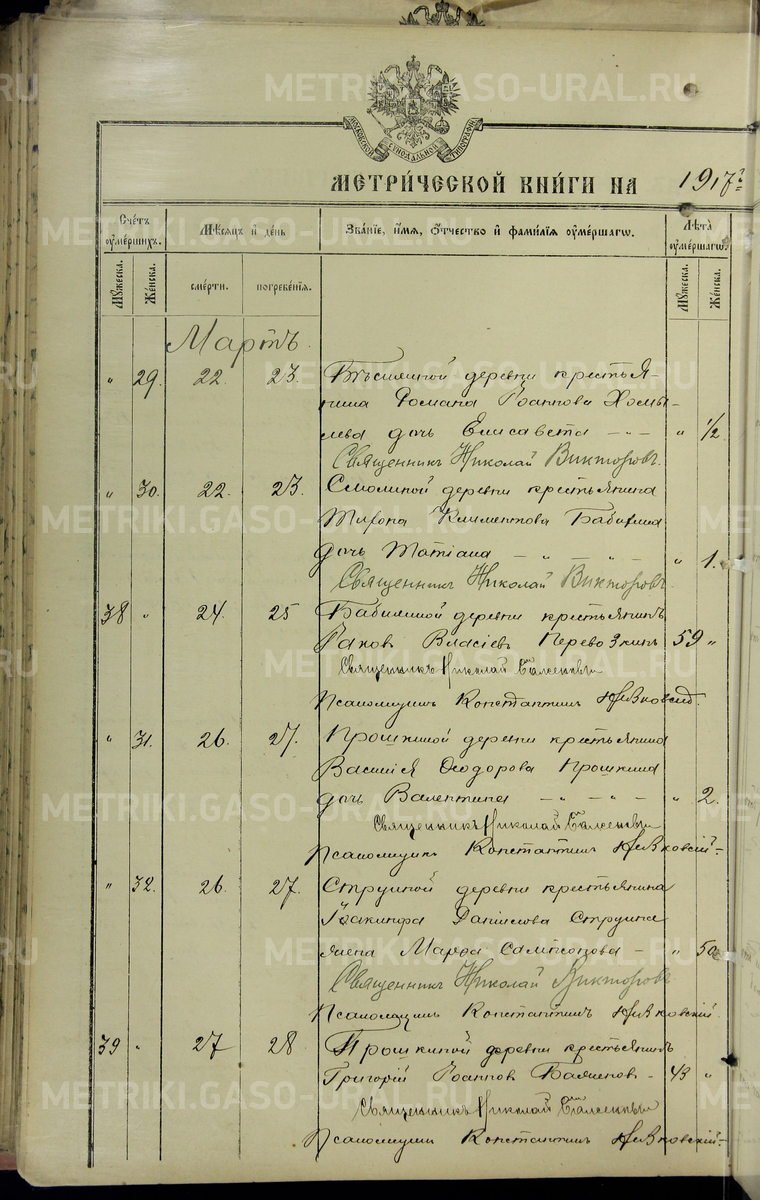 МОСКОВСКОЙ СѴНОДАЛЬНОЙ ТИПОГРАФІИ
МЕТРИ́ЧЕСКОЙ КНИ́ГИ НА 1917 г.
Счетъ оумершихъ.
Мѣсяцъ и день
Званіе, имя, отчество и фамилія оумершагѡ.
Лѣта оумершагѡ.
Мужеска.
Женска.
смерти.
погребенія.
Мужеска.
Женска.
Мартъ.
" 29. 22. 23. деревни крестья-
нина Романа Іоаннова Хомы-
лева дочь Елисавета — " — " 1/2
Священникъ Николай Викторовъ.
" 30. 22. 23. Смолиной деревни крестьянина
Тихона Климентова Бабкина
дочь Татіана — " — " — " 1.
Священникъ Николай Викторовъ.
38 " 24. 25 Бабиной деревни крестьянинъ
Іаковъ Власіевъ Перевозкинъ 59 "
Священникъ Николай
Псаломщикъ Константинъ
" 31. 26. 27. Прошкиной деревни крестьянина
Василія Ѳеодорова Прошкина
дочь Валентина — " — " — " 2.
Священникъ Николай
Псаломщикъ Константинъ
" 32. 26. 27. деревни крестьянина
Іоакинфа Данилова
жена Марѳа Сампсонова — " 50
Священникъ Николай Викторовъ
Псаломщикъ Константинъ
39 " 27 28 Прошкиной деревни крестьянинъ
Григорій Іоанновъ — 43 "
Священникъ Николай
Псаломщикъ Константинъ
METRIKI.GASO-URAL.RU